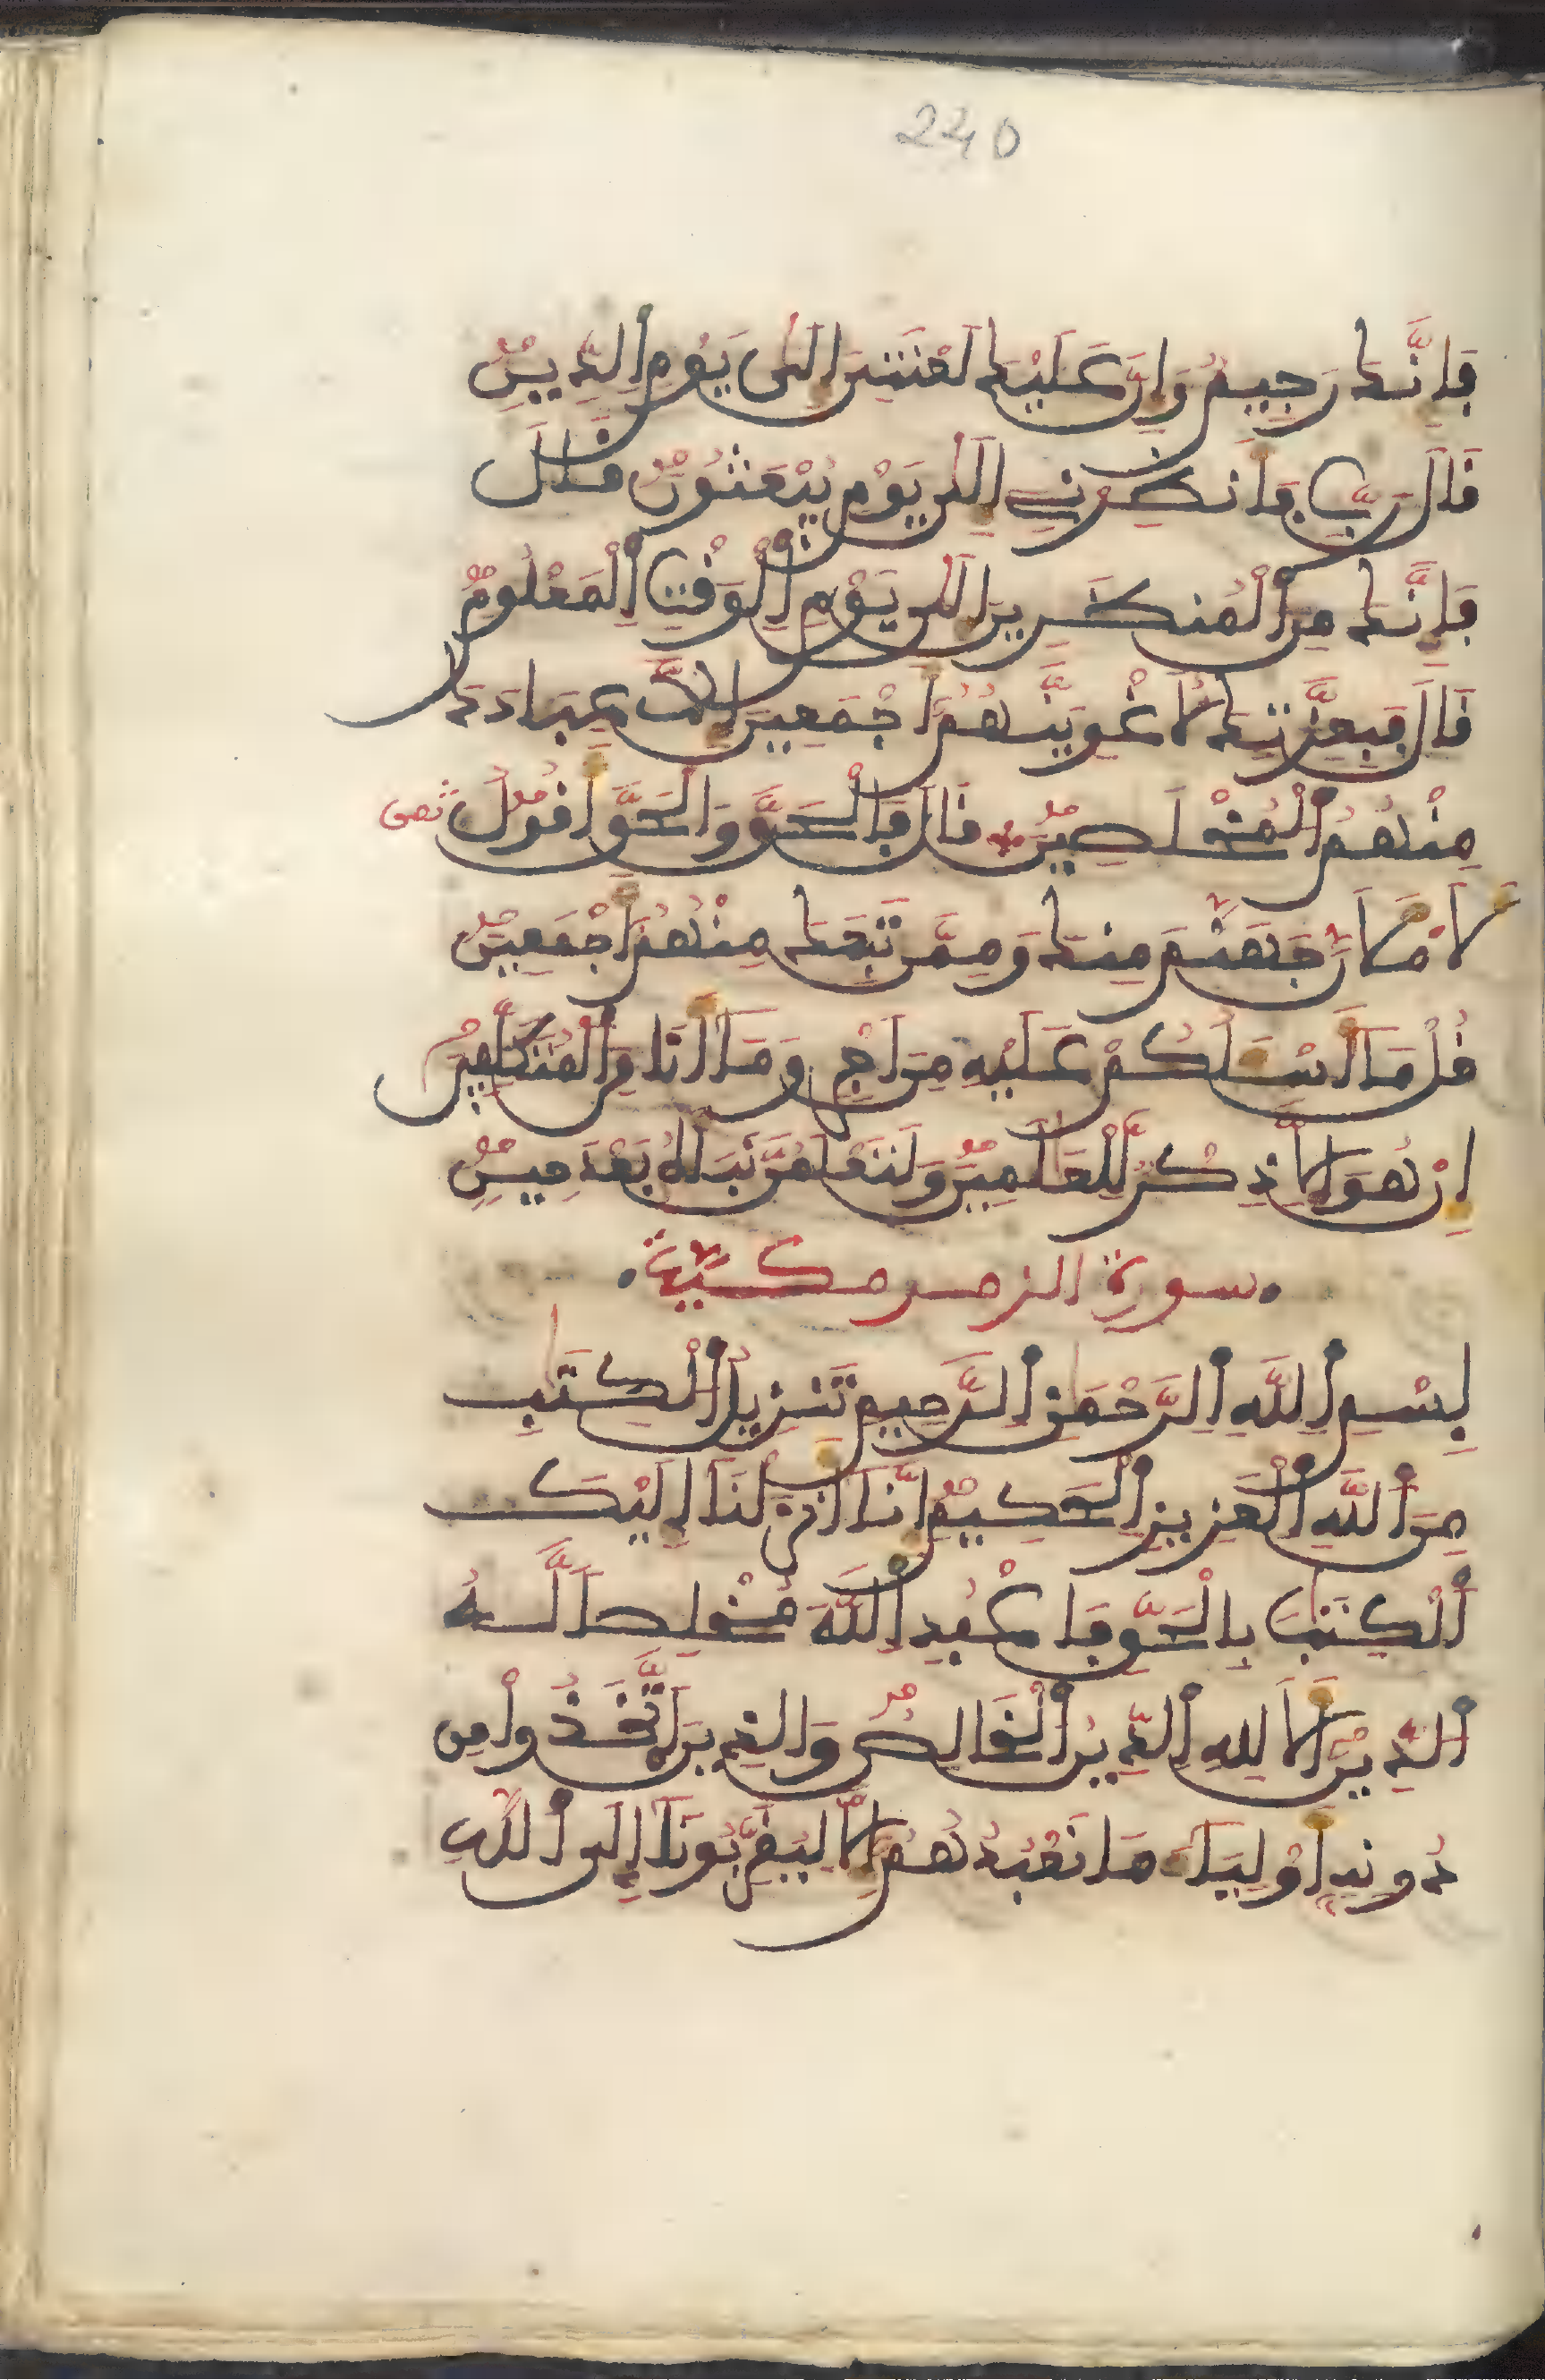 240
فَإِنَّكَ رَجِيمٌ وَإِنَّ عَلَيْكَ لَعْنَتِيَ إِلَىٰ يَوْمِ اِ۬لدِّينِ
قَالَ رَبِّ فَأَنظِرْنِے إِلَىٰ يَوْمِ يُبْعَثُونَ قَالَ
فَإِنَّكَ مِنَ اَ۬لْمُنظَرِينَ إِلَىٰ يَوْمِ اِ۬لْوَقْتِ اِ۬لْمَعْلُومِ
قَالَ فَبِعِزَّتِكَ لَأُغْوِيَنَّهُمُۥ أَجْمَعِينَ إِلَّا عِبَادَكَ
مِنْهُمُ اُ۬لْمُخْلَصِينَ قَالَ فَالْحَقَّ وَالْحَقَّ أَقُولُ
لَأَمْلَأَنَّ جَهَنَّمَ مِنكَ وَمِمَّن تَبِعَكَ مِنْهُمُۥ أَجْمَعِينَ
قُلْ مَا أَسْـَٔلُكُمْ عَلَيْهِ مِنَ اَجْرٍ وَمَا أَنَا مِنَ اَ۬لْمُتَكَلِّفِينَ
إِنْ هُوَ إِلَّا ذِكْرٌ لِّلْعَٰلَمِينَ وَلَتَعْلَمُنَّ نَبَأَهُۥ بَعْدَ حِينٍ
سورة الزمر مكيّة
بِسْمِ اِ۬للَّهِ اِ۬لرَّحْمَٰنِ اِ۬لرَّحِيمِ تَنزِيلُ اُ۬لْكِتَٰبِ
مِنَ اَ۬للَّهِ اِ۬لْعَزِيزِ اِ۬لْحَكِيمِ إِنَّا أَنزَلْنَا إِلَيْكَ
اَ۬لْكِتَٰبَ بِالْحَقِّ فَاعْبُدِ اِ۬للَّهَ مُخْلِصاً لَّهُ
اُ۬لدِّينَ أَلَا لِلهِ اِ۬لدِّينُ اُ۬لْخَالِصُ وَالذِينَ اَ۪تَّخَذُواْ مِن
دُونِهِۦ أَوْلِيَاءَ مَا نَعْبُدُهُمُۥ إِلَّا لِيُقَرِّبُونَا إِلَى اَ۬للَّهِ